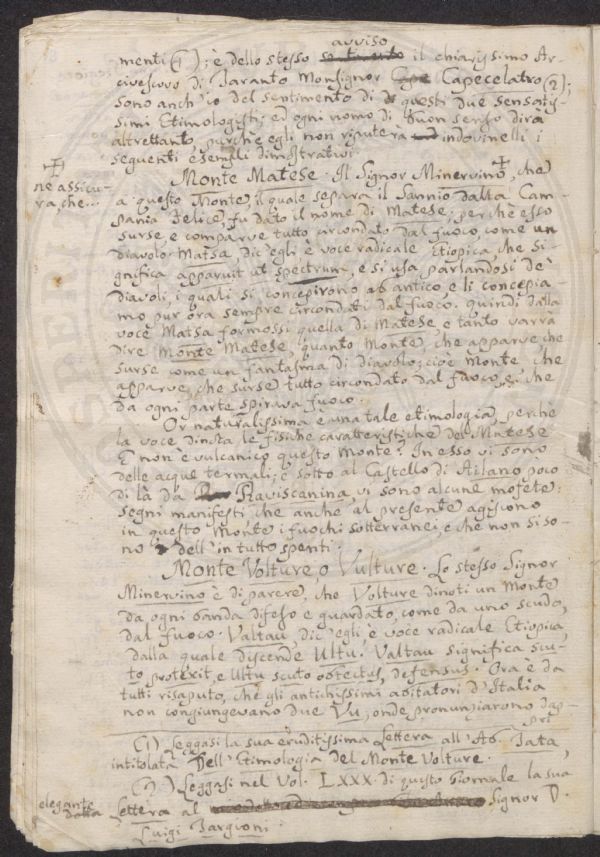 avviso
menti (1); è dello stesso sentimento il chiarissimo Ar-
civescovo di Taranto Monsignor Cape Capecelatro (2);
sono anch'io del sentimento di questi due sensatis-
simi Etimologisti; ed ogni uomo di buon senso dirà
altrettanto, purchè egli non riputerà indovinelli i
seguenti esempli dimostrativi.
Monte Matese. Il Signor Minervino, che
ne assicu-
ra, che...
a questo Monte, il quale separa il Sannio dalla Cam-
pania Felice, fu dato il nome di Matese, perchè esso
surse e comparve tutto circondato dal fuoco, come un
diavolo. Matsa, dic'egli è voce radicale Etiopica, che si-
gnifica apparuit ut spectrum, e si usa parlandosi de'
Diavoli, i quali si concepirono ab antico, e li concepia-
mo pur ora sempre circondati dal fuoco. Quindi dalla
voce Matsa formossi quella di Matese, e tanto varrà
dire Monte Matese, quanto Monte, che apparve, che
surse come un fantasma di diavolo; cioè Monte che
apparve, che surse tutto circondato dal fuoco, e che
da ogni parte spirava fuoco.
Or naturalissima è una tale etimologia, perchè
la voce dinota le fisiche caratteristiche del Matese
E non è vulcanico questo Monte? In esso vi sono
delle acque termali; e sotto al Castello di Ailano poco
di là da Raviscanina, vi sono alcune mofete:
segni manifesti che anche al presente agiscono
in questo Monte i fuochi sotterranei, e che non si so-
no dell'in tutto spenti.
Monte Volture, o Vulture. Lo stesso Signor
Minervino è di parere, che Volture dinoti un Monte
da ogni banda difeso e guardato, come da uno scudo,
dal fuoco. Valtau, dic'egli, è voce radicale Etiopica,
dalla quale discende Ultu. Valtau significa scu-
to protexit, e Ultu scuto obtectus, defensus. Ora è da
tutti risaputo, che gli antichissimi abitatori d'Italia
non congiungevano due Vu, onde pronunziarono dap-
pri
(1) Leggasi la sua eruditissima Lettera all'Ab. Tata,
intitolata Dell'Etimologia del Monte Volture.
(2) Leggasi nel Vol. LXXX. di questo Giornale la sua
elegante
dotta
Lettera al Signor D.
Luigi Targioni.